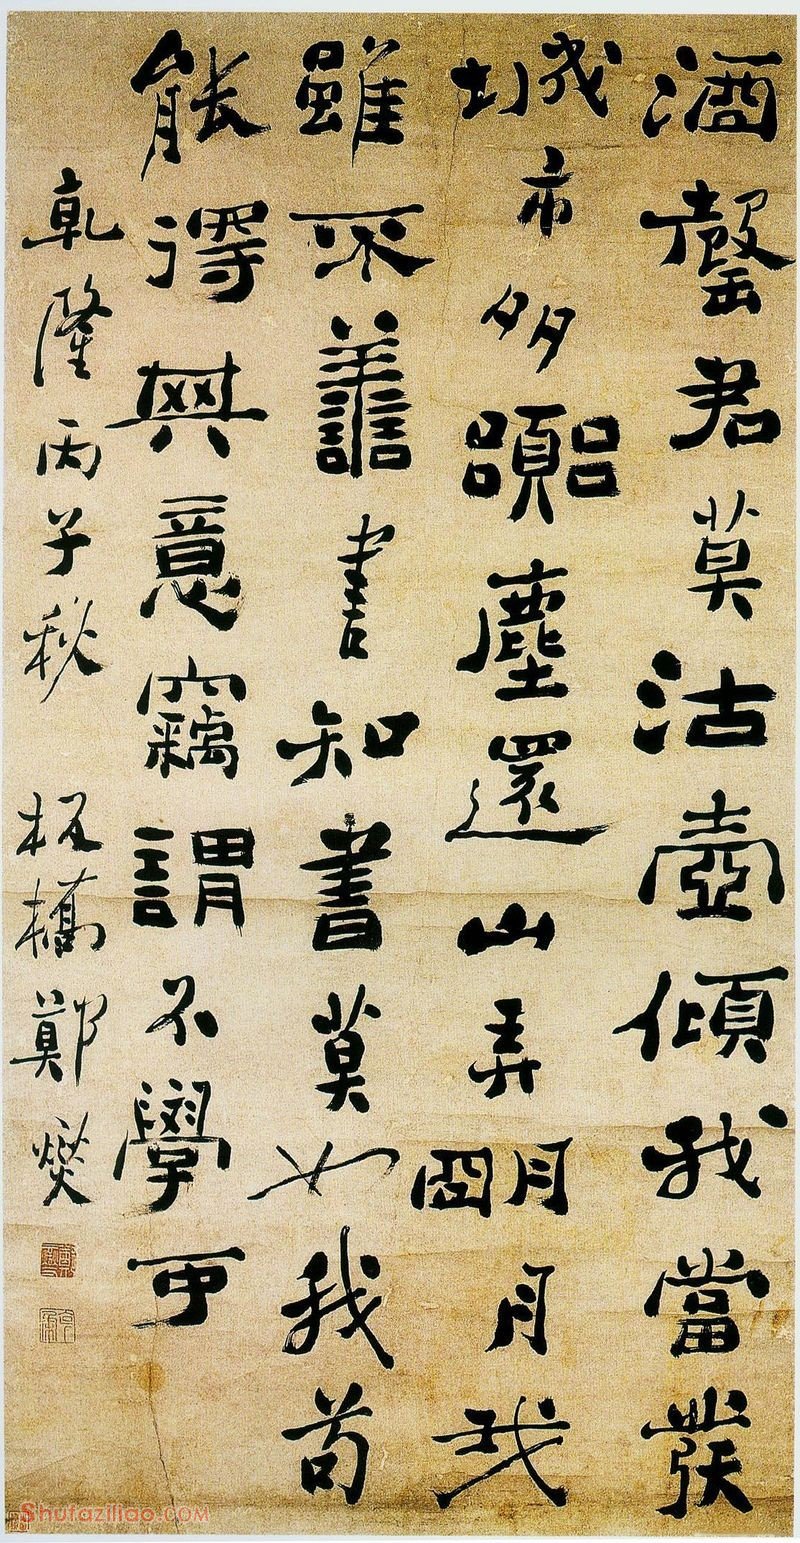 酒罄君莫沽壺傾我當發
城市多囂塵還山弄明月我
雖不善書知書莫如我苟
能得其意竊謂不學可
乾隆丙子秋 板橋鄭燮
Shufaziliao.COM